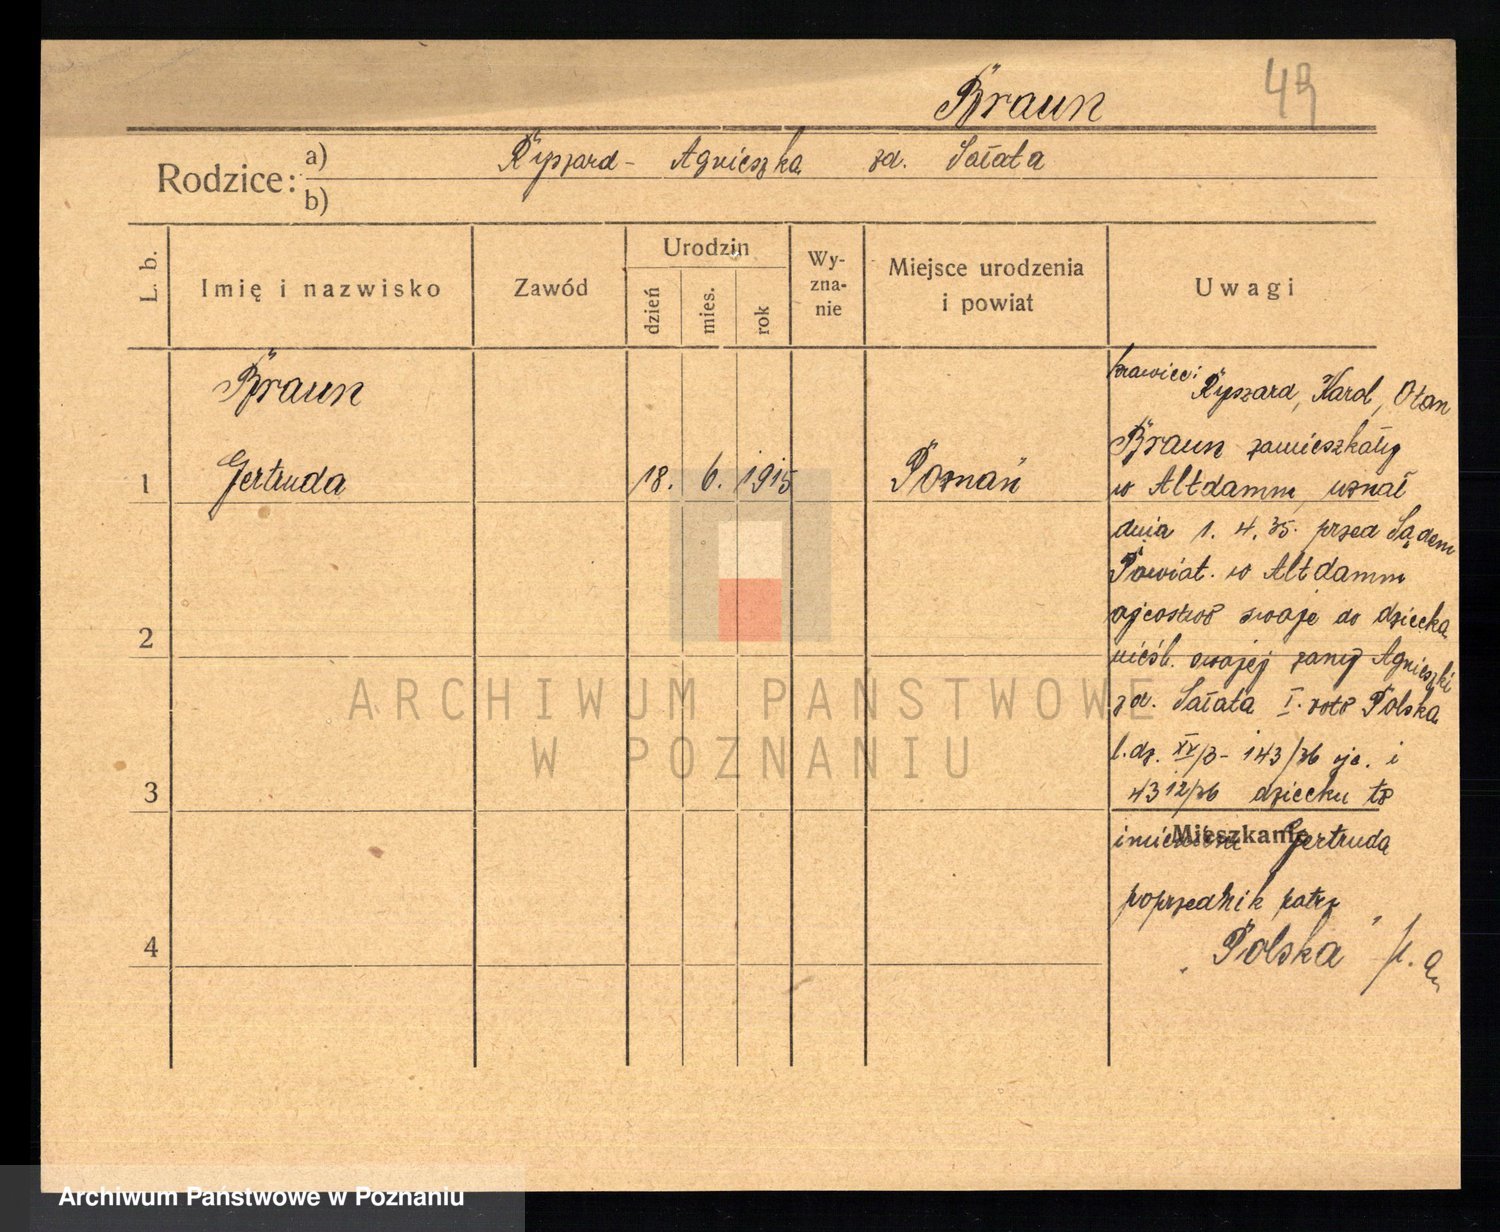 Braun 49
Rodzice: a) Ryszard - Agnieszka zd. Sałata
b)
L. b. Imię i nazwisko Zawód Urodzin dzień mies. rok Wy-zna-nie Miejsce urodzenia i powiat Uwagi
Braun
1 Gertruda 18. 6. 1915 Poznań
2
3
4
krawiec: Ryszard, Karol, Otan
Braun zamieszkały
w Altdamm, uznał
dnia 1. 4. 35. przed Sądem
Powiat. w Altdamm
ojcostwo swoje do dziecka
nieśl. swojej żony Agnieszki
zd. Sałata I. voto Polska
l. dz. XV/3 - 143/36 i
4312/36 dziecku to
Mieszkanie
imieniem Gertruda
poprzednik patrz
"Polska"
ARCHIWUM PAŃSTWOWE
W POZNANIU
Archiwum Państwowe w Poznaniu